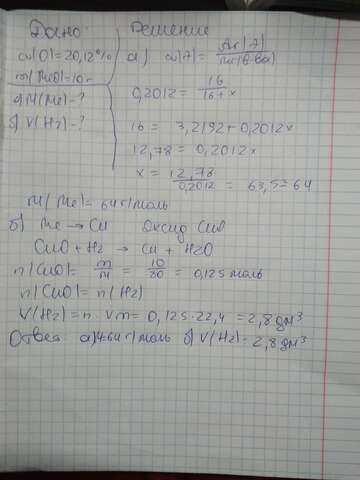 Дано: Решение
ω(O)=20,12% а) ω(?)= Ar(?) / Mr(в-ва)
m(MeO)=10г
а) M(Me)-? 0,2012 = 16 / 16+x
б) V(H2)-?
16 = 3,2192+0,2012x
12,78 = 0,2012x
x = 12,78 / 0,2012 = 63,5≈64
M(Me)= 64 г/моль
б) Me → Cu Оксид CuO
CuO + H2 → Cu + H2O
n(CuO)= m/M = 10/80 = 0,125 моль
n(CuO)= n(H2)
V(H2)=n·Vm= 0,125·22,4 =2,8дм³
Ответ а) 64г/моль б) V(H2)=2,8дм³